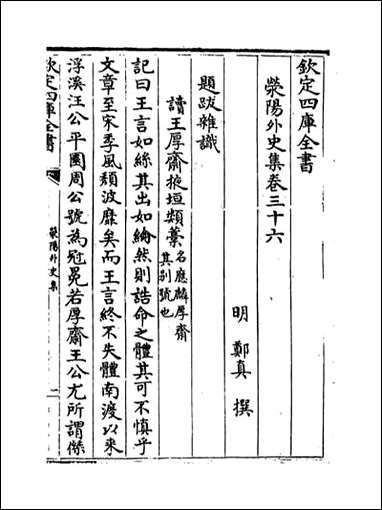 欽定四庫全書
滎陽外史集卷三十六
明 鄭真 撰
題跋雜識
讀王厚齋掖垣類藳名應麟厚齋其别號也
記曰王言如絲其出如綸然則誥命之體其可不慎乎
文章至宋季風頽波靡矣而王言終不失體南渡以来
浮溪汪公平園周公號為冠冕若厚齋王公尤所謂傑
欽定四庫全書
滎陽外史集